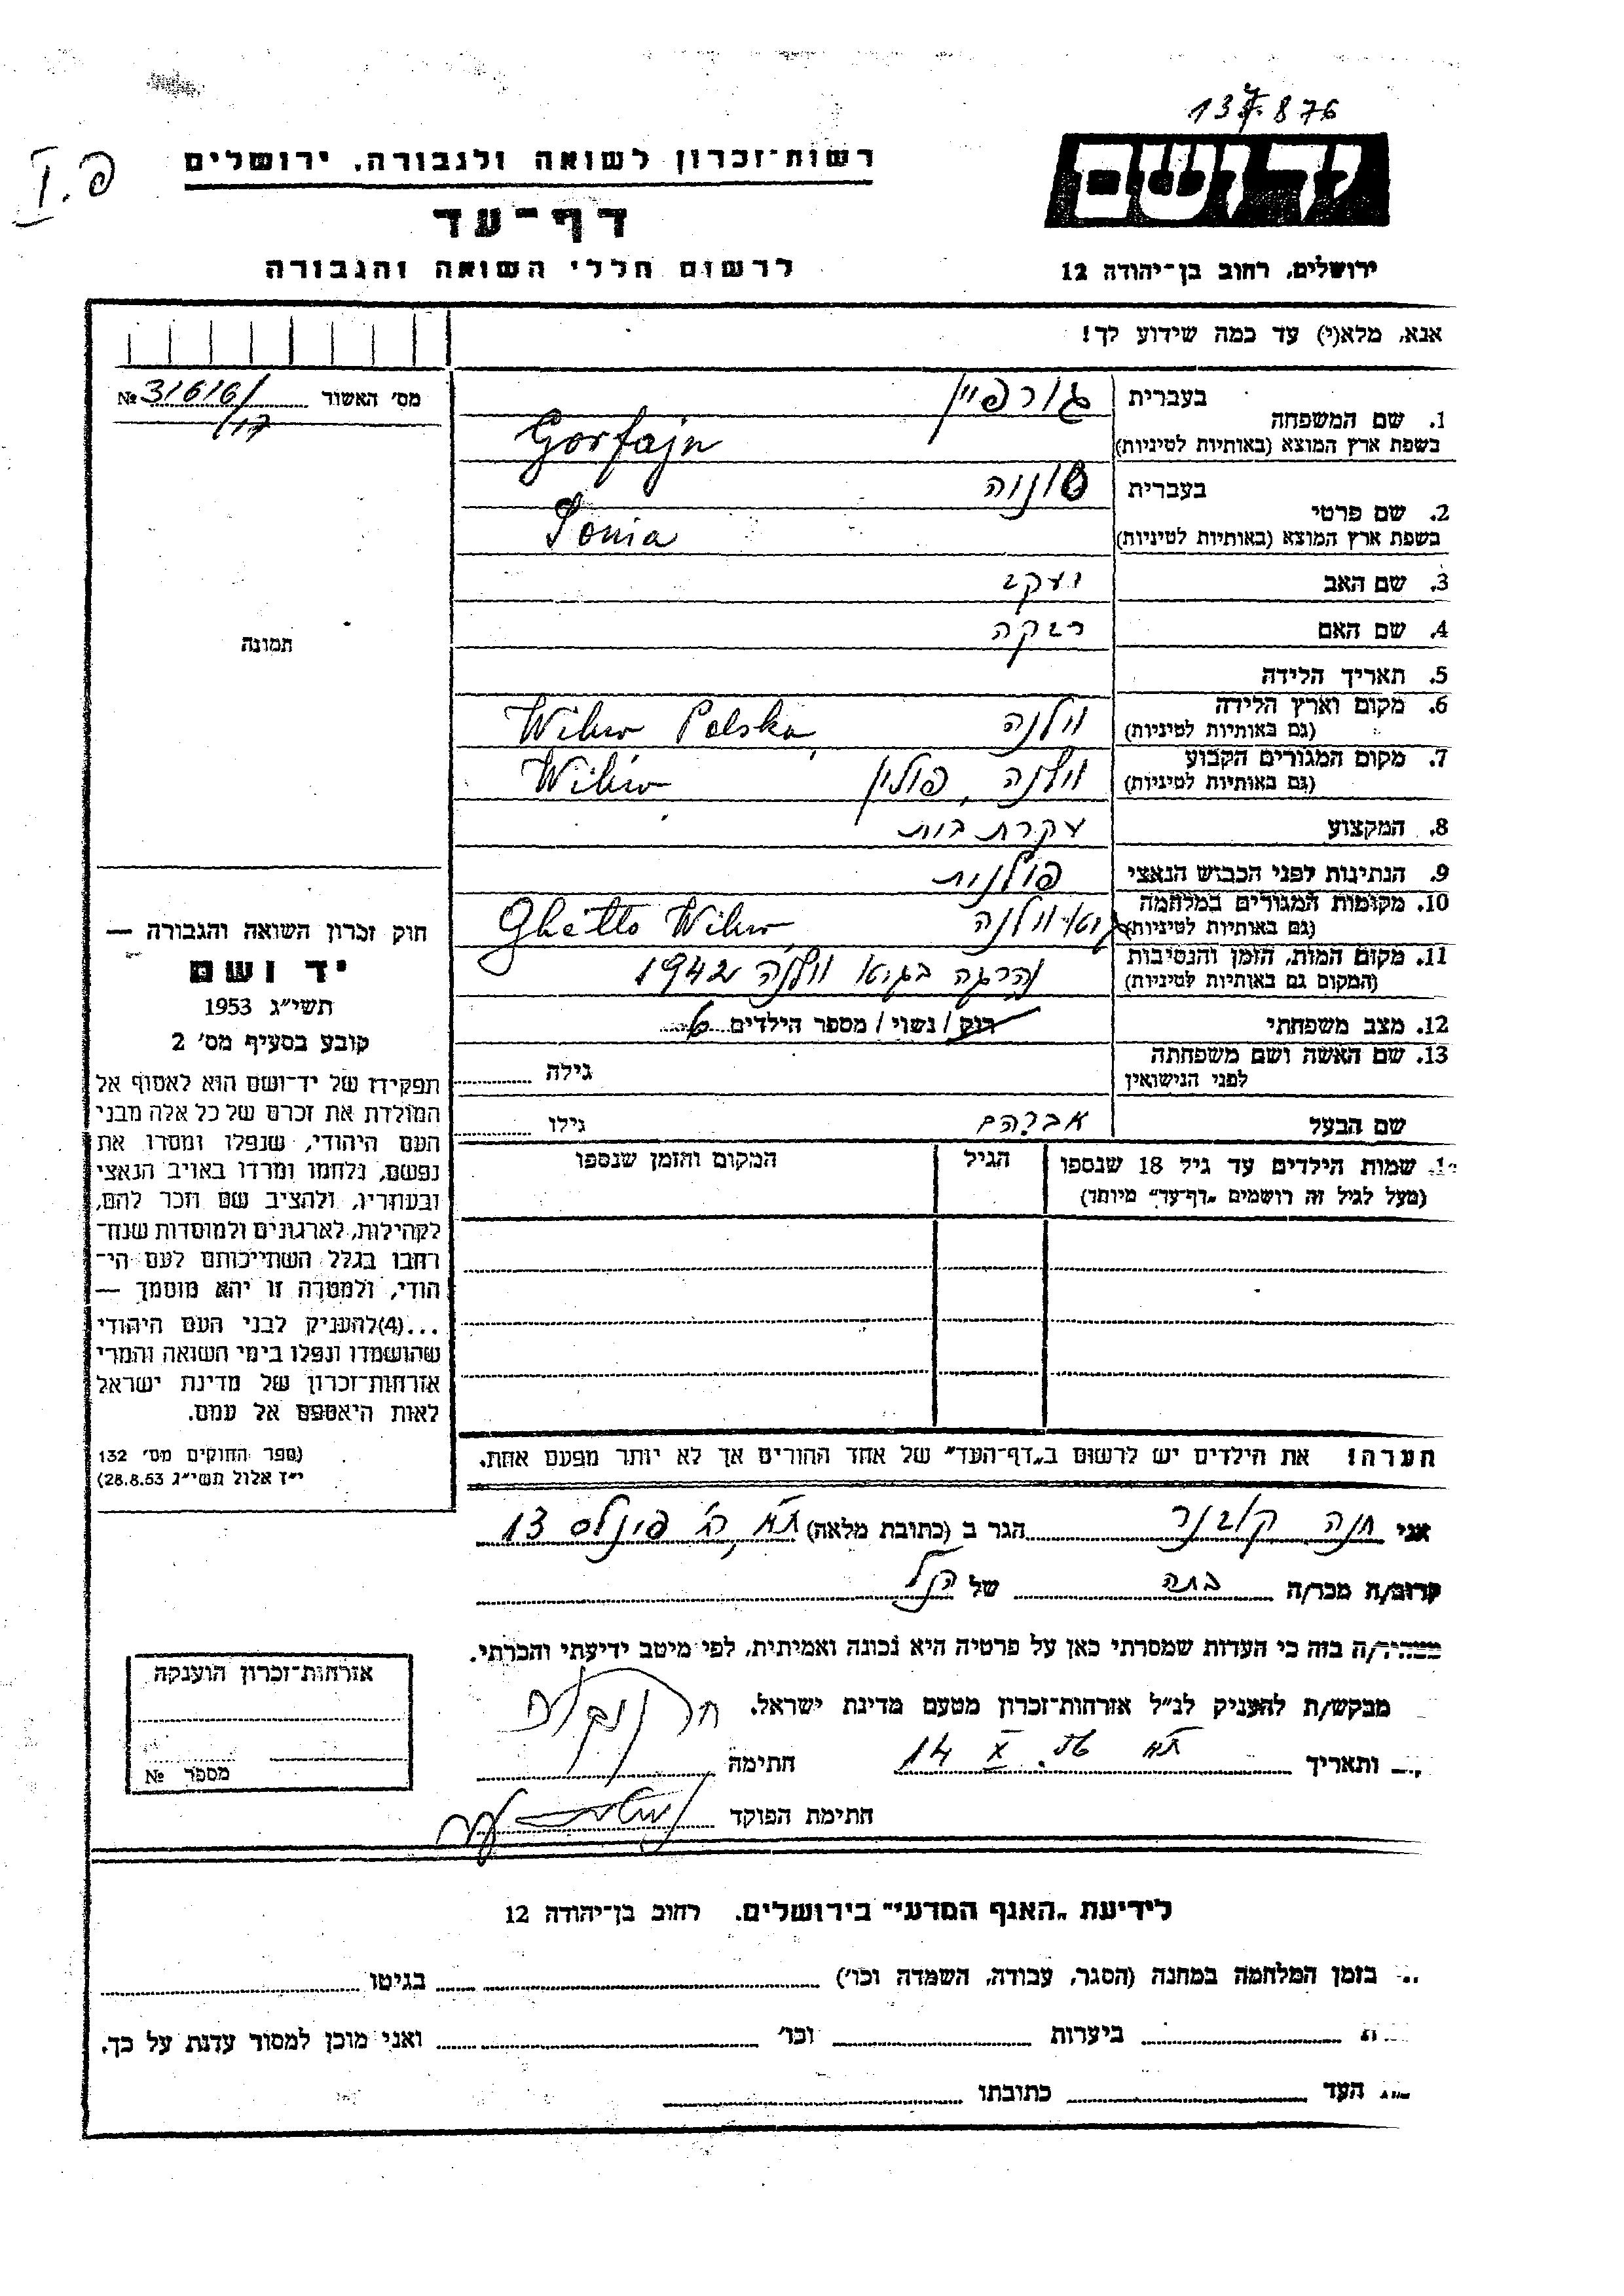 137.876
פ. I
רשות־זכרון לשואה ולגבורה, ירושלים
דף־עד
לרשום חללי השואה והגבורה
יד ושם
ירושלים, רחוב בן־יהודה 12
אנא, מלא(י) עד כמה שידוע לך!
מס' האשור № 31616/
17
תמונה
1. שם המשפחה
בעברית גורפיין
בשפת ארץ המוצא (באותיות לטיניות) Gorfajn
2. שם פרטי
בעברית סוניה
בשפת ארץ המוצא (באותיות לטיניות) Sonia
3. שם האב יעקב
4. שם האם רבקה
5. תאריך הלידה
6. מקום וארץ הלידה
(גם באותיות לטיניות) וילנה Wilno Polska
7. מקום המגורים הקבוע
(גם באותיות לטיניות) וילנה, פולין Wilno
8. המקצוע עקרת בית
9. הנתינות לפני הכבוש הנאצי פולנית
10. מקומות המגורים במלחמה
(גם באותיות לטיניות) גיטו וילנה Ghetto Wilno
11. מקום המות, הזמן והנסיבות
(המקום גם באותיות לטיניות) נהרגה בגיטו וילנה 1942
12. מצב משפחתי רוק / נשוי / מספר הילדים
13. שם האשה ושם משפחתה
לפני הנישואין גילה
שם הבעל אברהם גילו
שמות הילדים עד גיל 18 שנספו
(מעל לגיל זה רושמים „דף־עד" מיוחד)
הגיל
המקום והזמן שנספו
הערה! את הילדים יש לרשום ב„דף־העד" של אחד ההורים אך לא יותר מפעם אחת.
חוק זכרון השואה והגבורה —
יד ושם
תשי"ג 1953
קובע בסעיף מס' 2
תפקידו של יד־ושם הוא לאסוף אל
המולדת את זכרם של כל אלה מבני
העם היהודי, שנפלו ומסרו את
נפשם, נלחמו ומרדו באויב הנאצי
ובעוזריו, ולהציב שם וזכר להם,
לקהילות, לארגונים ולמוסדות שנח־
רחבו בגלל השתייכותם לעם הי־
הודי, ולמטרה זו יהא מוסמך —
...(4)להעניק לבני העם היהודי
שהושמדו ונפלו בימי השואה והמרי
אזרחות־זכרון של מדינת ישראל
לאות היאספם אל עמם.
(ספר החוקים מס' 132
י"ז אלול תשי"ג 28.8.53)
אני חנה קובנר הגר ב (כתובת מלאה) ת"א, רח' פינלס 13
קרוב/ה מכר/ה בתה של הנ"ל
מצהיר/ה בזה כי העדות שמסרתי כאן על פרטיה היא נכונה ואמיתית, לפי מיטב ידיעתי והכרתי.
מבקש/ת להעניק לנ"ל אזרחות־זכרון מטעם מדינת ישראל.
ותאריך ת"א 14 X 56. חתימה
חתימת הפוקד
אזרחות־זכרון הוענקה
מספר №
לידיעת „האגף המדעי" בירושלים. רחוב בן־יהודה 12
בזמן המלחמה במחנה (הסגר, עבודה, השמדה וכו') בגיטו
ביערות וכו' ואני מוכן למסור עדות על כך.
העד כתובתו